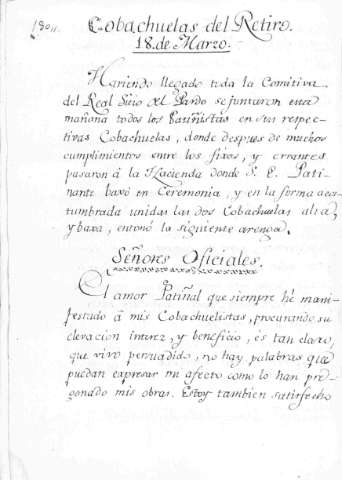 1801.
Cobachuelas del Retiro.
18. de Marzo.
Haviendo llegado toda la Comitiva
del Real Sitio del Pardo se juntaron esta
mañana todos los Patiñistas en sus respec-
tivas Cobachuelas, donde despues de muchos
cumplimientos entre los fixos, y errantes
pasaron á la Hacienda donde S. E. Pati-
nante baxó en Ceremonia, y en la forma acos-
tumbrada unidas las dos Cobachuelas alta,
y baxa, entonó la siguiente arenga.
Señores Oficiales.
El amor Patiñal que siempre hé mani-
festado á mis Cobachuelistas, procurando su
elevacion interez, y beneficio, es tan claro,
que vivo persuadido, no hay palabras que
puedan expresar mi afecto como lo han pre-
gonado mis obras. Estoy tambien satisfecho